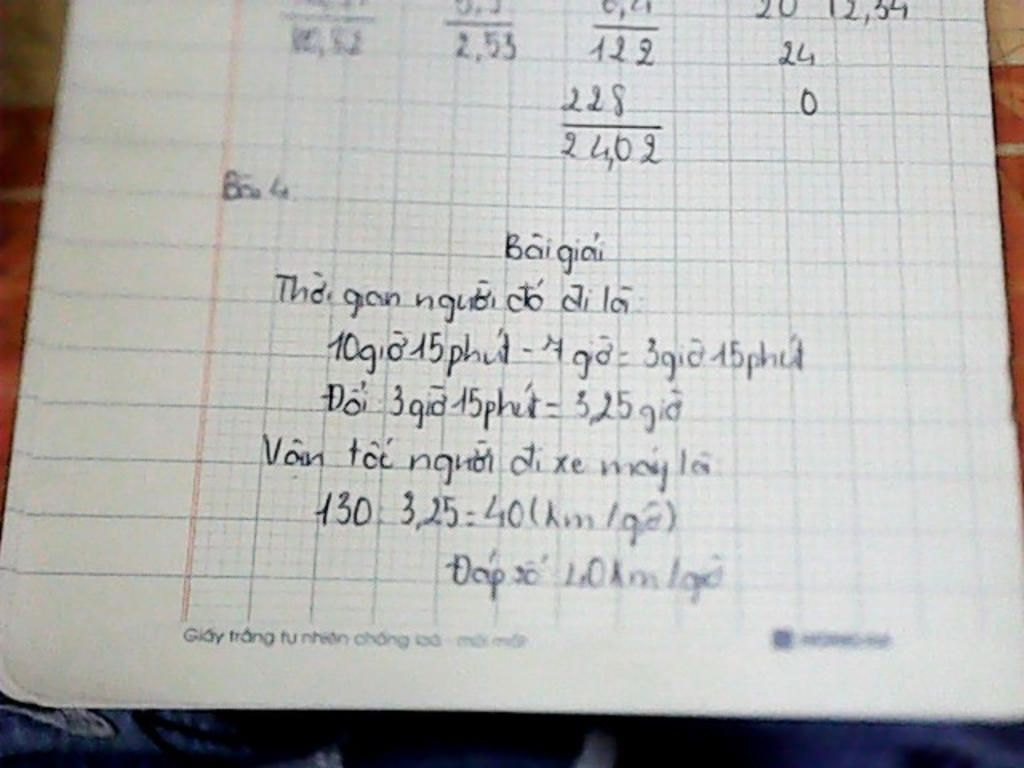 20 12,34
2,53
122
24
228
0
24,02
Bài 4:
Bài giải
Thời gian người đó đi là:
10giờ15phút - 7 giờ = 3giờ15phút
Đổi: 3giờ15phút = 3,25 giờ
Vận tốc người đi xe máy là:
130: 3,25 = 40 (km/giờ)
Đáp số: 40 km/giờ
Giấy trắng tự nhiên chống loá - mỏi mắt